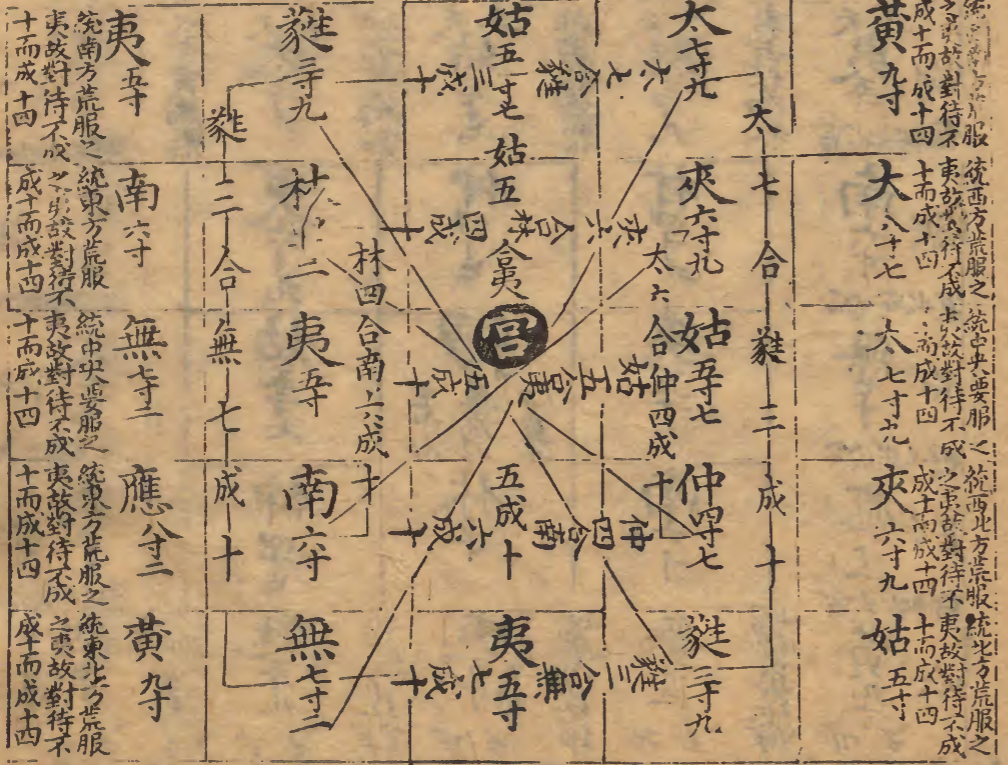 黃九寸
方荒服
之夷故對待不
成十而成十四
大八寸七
統西方荒服之
夷故對待不成
十而成十四
太七寸九
統中央要服之
夷故對待不成
十而成十四
夾六寸九
統西北方荒服
之夷故對待不
成十而成十四
姑五寸
統北方荒服之
夷故對待不成
十而成十四
太七合蕤三成十
太七寸九
夾六寸九
姑五寸七
仲四寸七
蕤三寸九
太六合仲四成十
姑五寸七
姑五合夷五成十
宮
夷五寸
太七合蕤三成十
夾六合林四成十
姑五合夷五成十
仲四合南六成十
蕤三合無七成十
林四合南六成十
蕤三寸九
林二
夷五寸
南六寸
無七寸二
蕤三合無七成十
夷五寸
統南方荒服之
夷故對待不成
十而成十四
南六寸
統東方荒服
之夷故對待不
成十而成十四
無七寸二
統中央要服之
夷故對待不成
十而成十四
應八寸二
統東方荒服之
夷故對待不成
十而成十四
黃九寸
統東北方荒服
之夷故對待不
成十而成十四